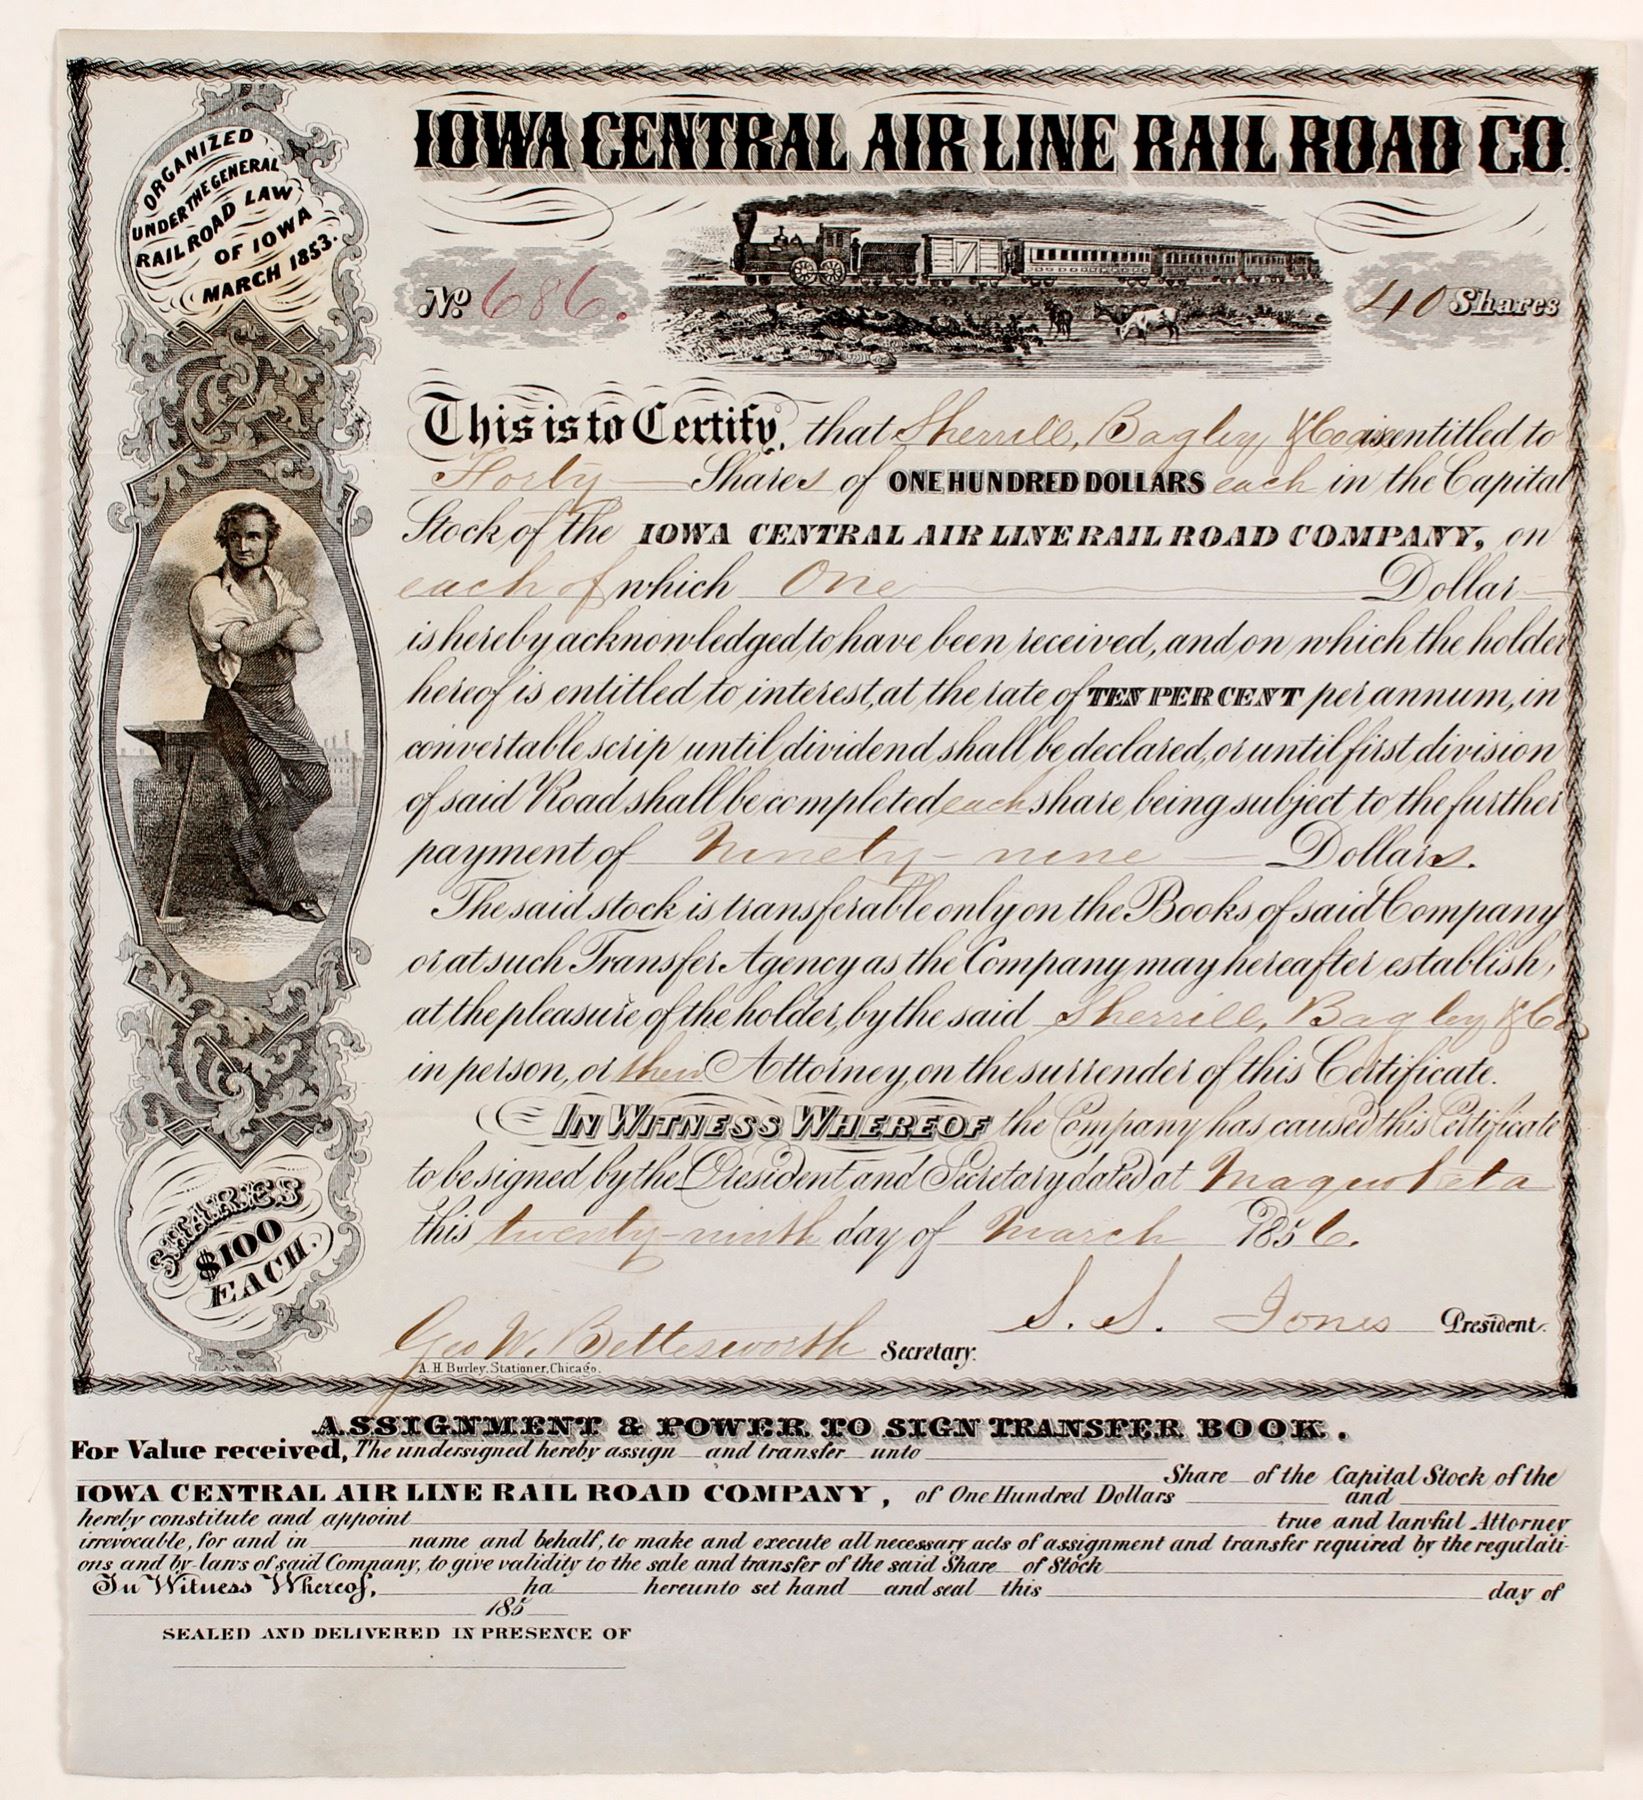 IOWA CENTRAL AIR LINE RAIL ROAD CO.
ORGANIZED
UNDER THE GENERAL
RAIL ROAD LAW
OF IOWA
MARCH 1853.
No 686.
40 Shares
This is to Certify, that Sherrill, Bagley & Co are entitled to
Forty Shares of ONE HUNDRED DOLLARS each in the Capital
Stock of the IOWA CENTRAL AIR LINE RAIL ROAD COMPANY, on
each of which One Dollar
is hereby acknowledged to have been received, and on which the holder
hereof is entitled to interest, at the rate of TEN PER CENT per annum, in
convertable scrip until dividend shall be declared, or until first division
of said Road shall be completed each share being subject to the further
payment of Ninety-nine Dollars.
The said stock is transferable only on the Books of said Company
or at such Transfer Agency as the Company may hereafter establish,
at the pleasure of the holder, by the said Sherrill, Bagley & Co
in person, or their Attorney, on the surrender of this Certificate.
IN WITNESS WHEREOF the Company has caused this Certificate
to be signed by the President and Secretary dated at Maquoketa
this twenty-ninth day of March 1856.
SHARES
$100
EACH.
S. S. Jones President.
Geo W. Bettesworth Secretary.
A. H. Burley, Stationer, Chicago.
ASSIGNMENT & POWER TO SIGN TRANSFER BOOK.
For Value received, The undersigned hereby assign and transfer unto
Share of the Capital Stock of the
IOWA CENTRAL AIR LINE RAIL ROAD COMPANY, of One Hundred Dollars and
hereby constitute and appoint true and lawful Attorney
irrevocable, for and in name and behalf, to make and execute all necessary acts of assignment and transfer required by the regulati-
ons and by-laws of said Company, to give validity to the sale and transfer of the said Share of Stock
In Witness Whereof, ha hereunto set hand and seal this day of
185
SEALED AND DELIVERED IN PRESENCE OF